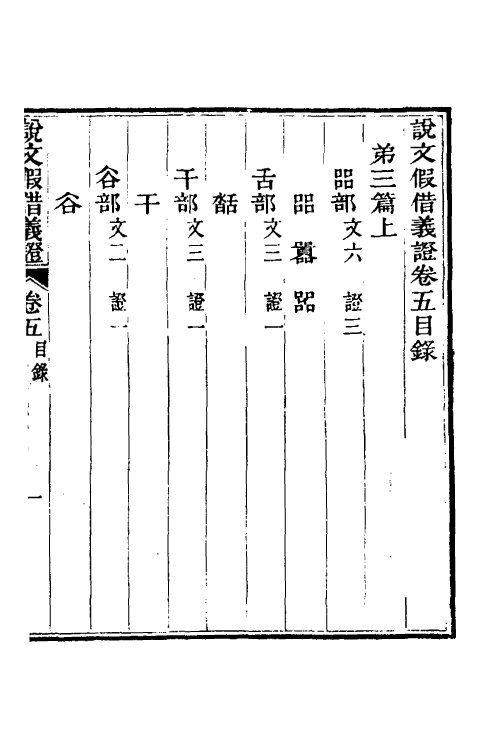 說文假借義證卷五目錄
弟三篇上
㗊部文六 證三
㗊 囂 器
舌部文三 證一
干部文三 證一
干
谷部文二 證一
谷
說文假借義證 卷五 目錄 一